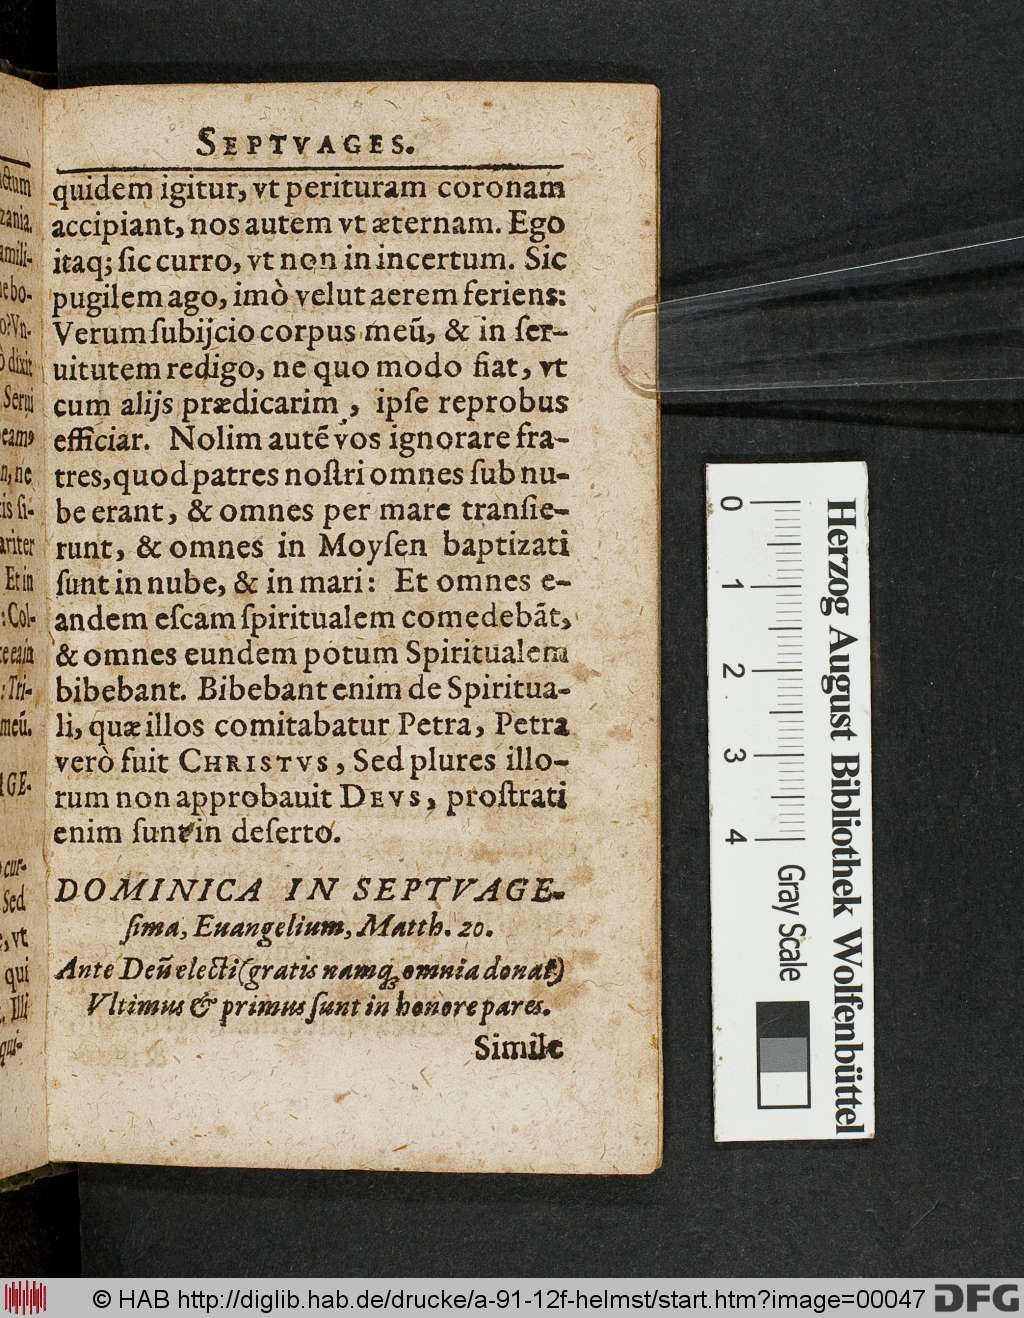 SEPTVAGES.
quidem igitur, vt perituram coronam
accipiant, nos autem vt æternam. Ego
itaq; ſic curro, vt non in incertum. Sic
pugilem ago, imò velut aerem feriens:
Verum ſubijcio corpus meū, & in ſer-
uitutem redigo, ne quo modo fiat, vt
cum alijs prædicarim, ipſe reprobus
efficiar. Nolim autē vos ignorare fra-
tres, quod patres noſtri omnes ſub nu-
be erant, & omnes per mare tranſie-
runt, & omnes in Moyſen baptizati
ſunt in nube, & in mari: Et omnes e-
andem eſcam ſpiritualem comedebāt,
& omnes eundem potum Spiritualem
bibebant. Bibebant enim de Spiritua-
li, quæ illos comitabatur Petra, Petra
verò fuit CHRISTVS, Sed plures illo-
rum non approbauit DEVS, proſtrati
enim ſunt in deſerto.
DOMINICA IN SEPTVAGE-
ſima, Euangelium, Matth. 20.
Ante Deū electi (gratis namq; omnia donat)
Vltimus & primus ſunt in honore pares.
Simile
ctum
zania.
amili-
e bo-
o? Vn-
ò dixit
Serui
eam,
n, ne
is ſi-
ariter
Et in
: Col-
te eam
: Tri-
meū.
AGE-
cur-
Sed
, vt
qui
. Illi
qui-
0 1 2 3 4
Herzog August Bibliothek Wolfenbüttel
Gray Scale
© HAB http://diglib.hab.de/drucke/a-91-12f-helmst/start.htm?image=00047
DFG